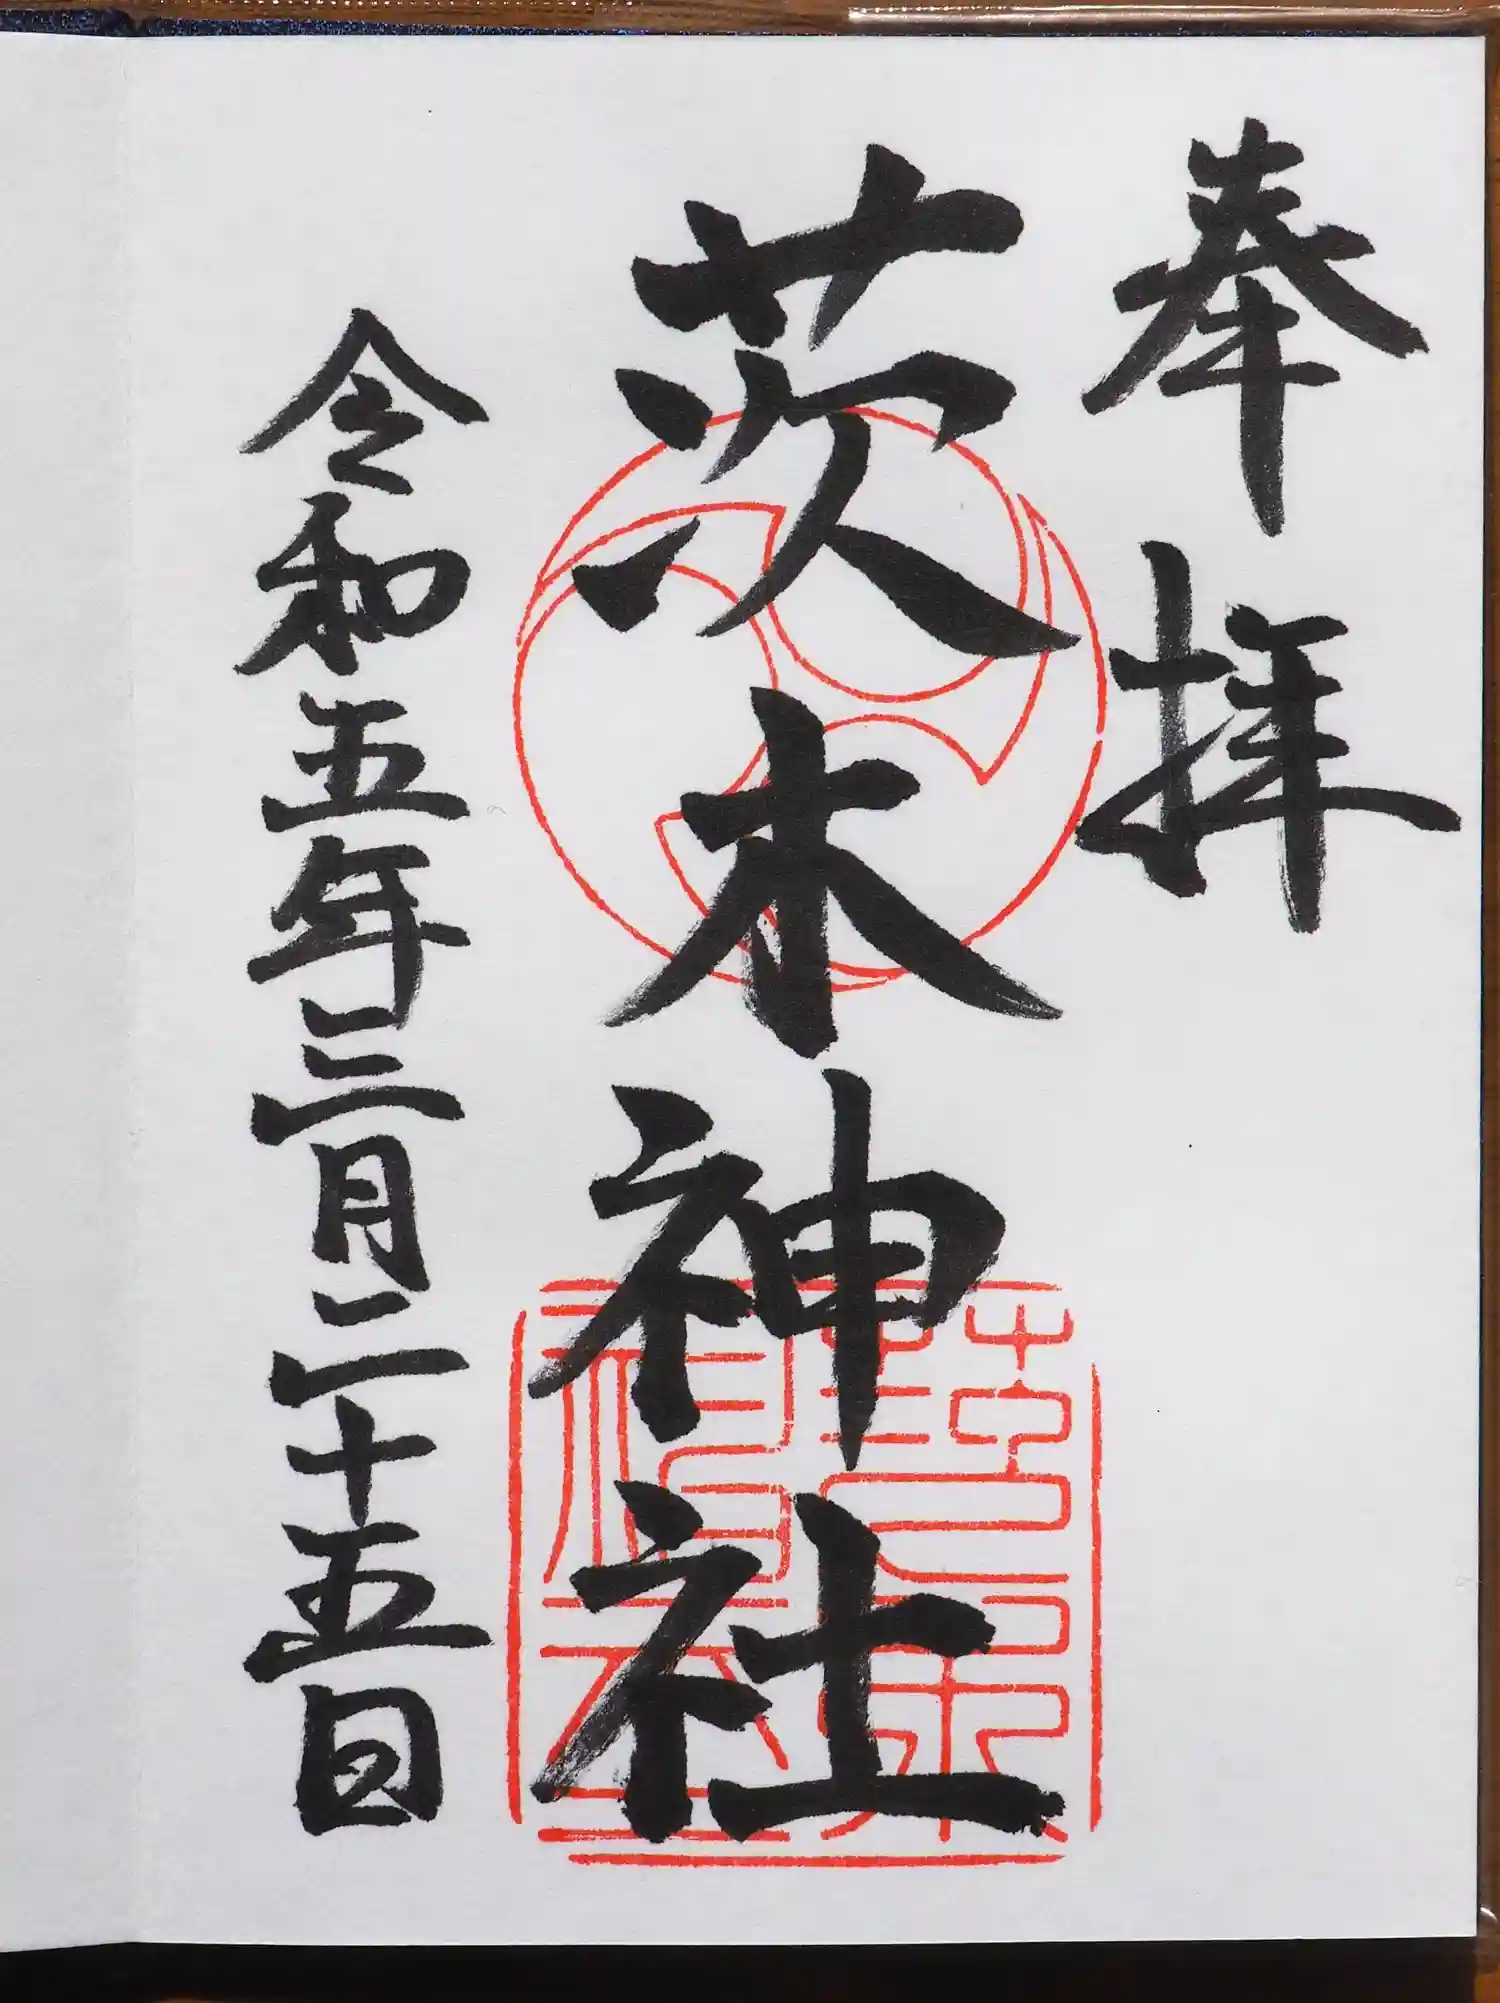 奉拝
茨木神社
令和五年三月二十五日